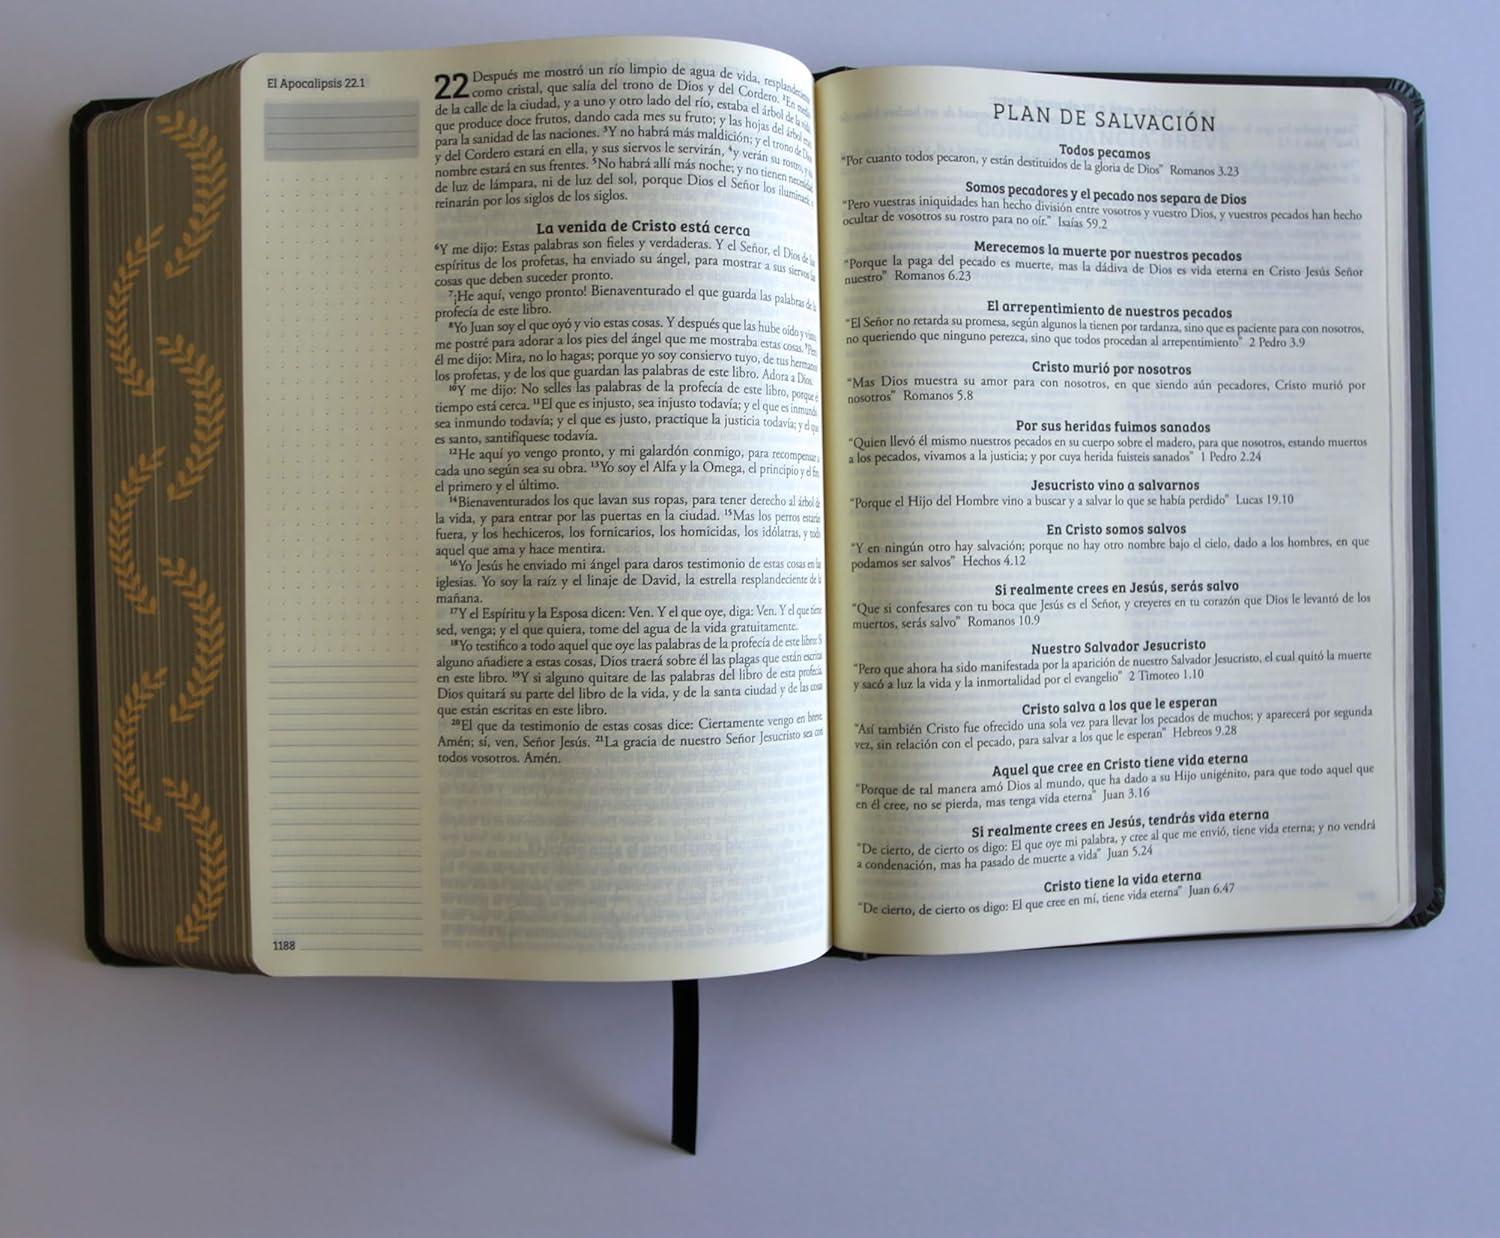 El Apocalipsis 22.1
22 Después me mostró un río limpio de agua de vida, resplandeciente
como cristal, que salía del trono de Dios y del Cordero. ²En medio
de la calle de la ciudad, y a uno y otro lado del río, estaba el árbol de la vida,
que produce doce frutos, dando cada mes su fruto; y las hojas del árbol eran
para la sanidad de las naciones. ³Y no habrá más maldición; y el trono de Dios
y del Cordero estará en ella, y sus siervos le servirán, ⁴y verán su rostro, y su
nombre estará en sus frentes. ⁵No habrá allí más noche; y no tienen necesidad
de luz de lámpara, ni de luz del sol, porque Dios el Señor los iluminará; y
reinarán por los siglos de los siglos.
La venida de Cristo está cerca
⁶Y me dijo: Estas palabras son fieles y verdaderas. Y el Señor, el Dios de los
espíritus de los profetas, ha enviado su ángel, para mostrar a sus siervos las
cosas que deben suceder pronto.
⁷¡He aquí, vengo pronto! Bienaventurado el que guarda las palabras de la
profecía de este libro.
⁸Yo Juan soy el que oyó y vio estas cosas. Y después que las hube oído y visto,
me postré para adorar a los pies del ángel que me mostraba estas cosas. ⁹Pero
él me dijo: Mira, no lo hagas; porque yo soy consiervo tuyo, de tus hermanos
los profetas, y de los que guardan las palabras de este libro. Adora a Dios.
¹⁰Y me dijo: No selles las palabras de la profecía de este libro, porque el
tiempo está cerca. ¹¹El que es injusto, sea injusto todavía; y el que es inmundo,
sea inmundo todavía; y el que es justo, practique la justicia todavía; y el que
es santo, santifíquese todavía.
¹²He aquí yo vengo pronto, y mi galardón conmigo, para recompensar a
cada uno según sea su obra. ¹³Yo soy el Alfa y la Omega, el principio y el fin,
el primero y el último.
¹⁴Bienaventurados los que lavan sus ropas, para tener derecho al árbol de
la vida, y para entrar por las puertas en la ciudad. ¹⁵Mas los perros estarán
fuera, y los hechiceros, los fornicarios, los homicidas, los idólatras, y todo
aquel que ama y hace mentira.
¹⁶Yo Jesús he enviado mi ángel para daros testimonio de estas cosas en las
iglesias. Yo soy la raíz y el linaje de David, la estrella resplandeciente de la
mañana.
¹⁷Y el Espíritu y la Esposa dicen: Ven. Y el que oye, diga: Ven. Y el que tiene
sed, venga; y el que quiera, tome del agua de la vida gratuitamente.
¹⁸Yo testifico a todo aquel que oye las palabras de la profecía de este libro: Si
alguno añadiere a estas cosas, Dios traerá sobre él las plagas que están escritas
en este libro. ¹⁹Y si alguno quitare de las palabras del libro de esta profecía,
Dios quitará su parte del libro de la vida, y de la santa ciudad y de las cosas
que están escritas en este libro.
²⁰El que da testimonio de estas cosas dice: Ciertamente vengo en breve.
Amén; sí, ven, Señor Jesús. ²¹La gracia de nuestro Señor Jesucristo sea con
todos vosotros. Amén.
1188
PLAN DE SALVACIÓN
Todos pecamos
"Por cuanto todos pecaron, y están destituidos de la gloria de Dios" Romanos 3.23
Somos pecadores y el pecado nos separa de Dios
"Pero vuestras iniquidades han hecho división entre vosotros y vuestro Dios, y vuestros pecados han hecho
ocultar de vosotros su rostro para no oír." Isaías 59.2
Merecemos la muerte por nuestros pecados
"Porque la paga del pecado es muerte, mas la dádiva de Dios es vida eterna en Cristo Jesús Señor
nuestro" Romanos 6.23
El arrepentimiento de nuestros pecados
"El Señor no retarda su promesa, según algunos la tienen por tardanza, sino que es paciente para con nosotros,
no queriendo que ninguno perezca, sino que todos procedan al arrepentimiento" 2 Pedro 3.9
Cristo murió por nosotros
"Mas Dios muestra su amor para con nosotros, en que siendo aún pecadores, Cristo murió por
nosotros" Romanos 5.8
Por sus heridas fuimos sanados
"Quien llevó él mismo nuestros pecados en su cuerpo sobre el madero, para que nosotros, estando muertos
a los pecados, vivamos a la justicia; y por cuya herida fuisteis sanados" 1 Pedro 2.24
Jesucristo vino a salvarnos
"Porque el Hijo del Hombre vino a buscar y a salvar lo que se había perdido" Lucas 19.10
En Cristo somos salvos
"Y en ningún otro hay salvación; porque no hay otro nombre bajo el cielo, dado a los hombres, en que
podamos ser salvos" Hechos 4.12
Si realmente crees en Jesús, serás salvo
"Que si confesares con tu boca que Jesús es el Señor, y creyeres en tu corazón que Dios le levantó de los
muertos, serás salvo" Romanos 10.9
Nuestro Salvador Jesucristo
"Pero que ahora ha sido manifestada por la aparición de nuestro Salvador Jesucristo, el cual quitó la muerte
y sacó a luz la vida y la inmortalidad por el evangelio" 2 Timoteo 1.10
Cristo salva a los que le esperan
"Así también Cristo fue ofrecido una sola vez para llevar los pecados de muchos; y aparecerá por segunda
vez, sin relación con el pecado, para salvar a los que le esperan" Hebreos 9.28
Aquel que cree en Cristo tiene vida eterna
"Porque de tal manera amó Dios al mundo, que ha dado a su Hijo unigénito, para que todo aquel que
en él cree, no se pierda, mas tenga vida eterna" Juan 3.16
Si realmente crees en Jesús, tendrás vida eterna
"De cierto, de cierto os digo: El que oye mi palabra, y cree al que me envió, tiene vida eterna; y no vendrá
a condenación, mas ha pasado de muerte a vida" Juan 5.24
Cristo tiene la vida eterna
"De cierto, de cierto os digo: El que cree en mí, tiene vida eterna" Juan 6.47